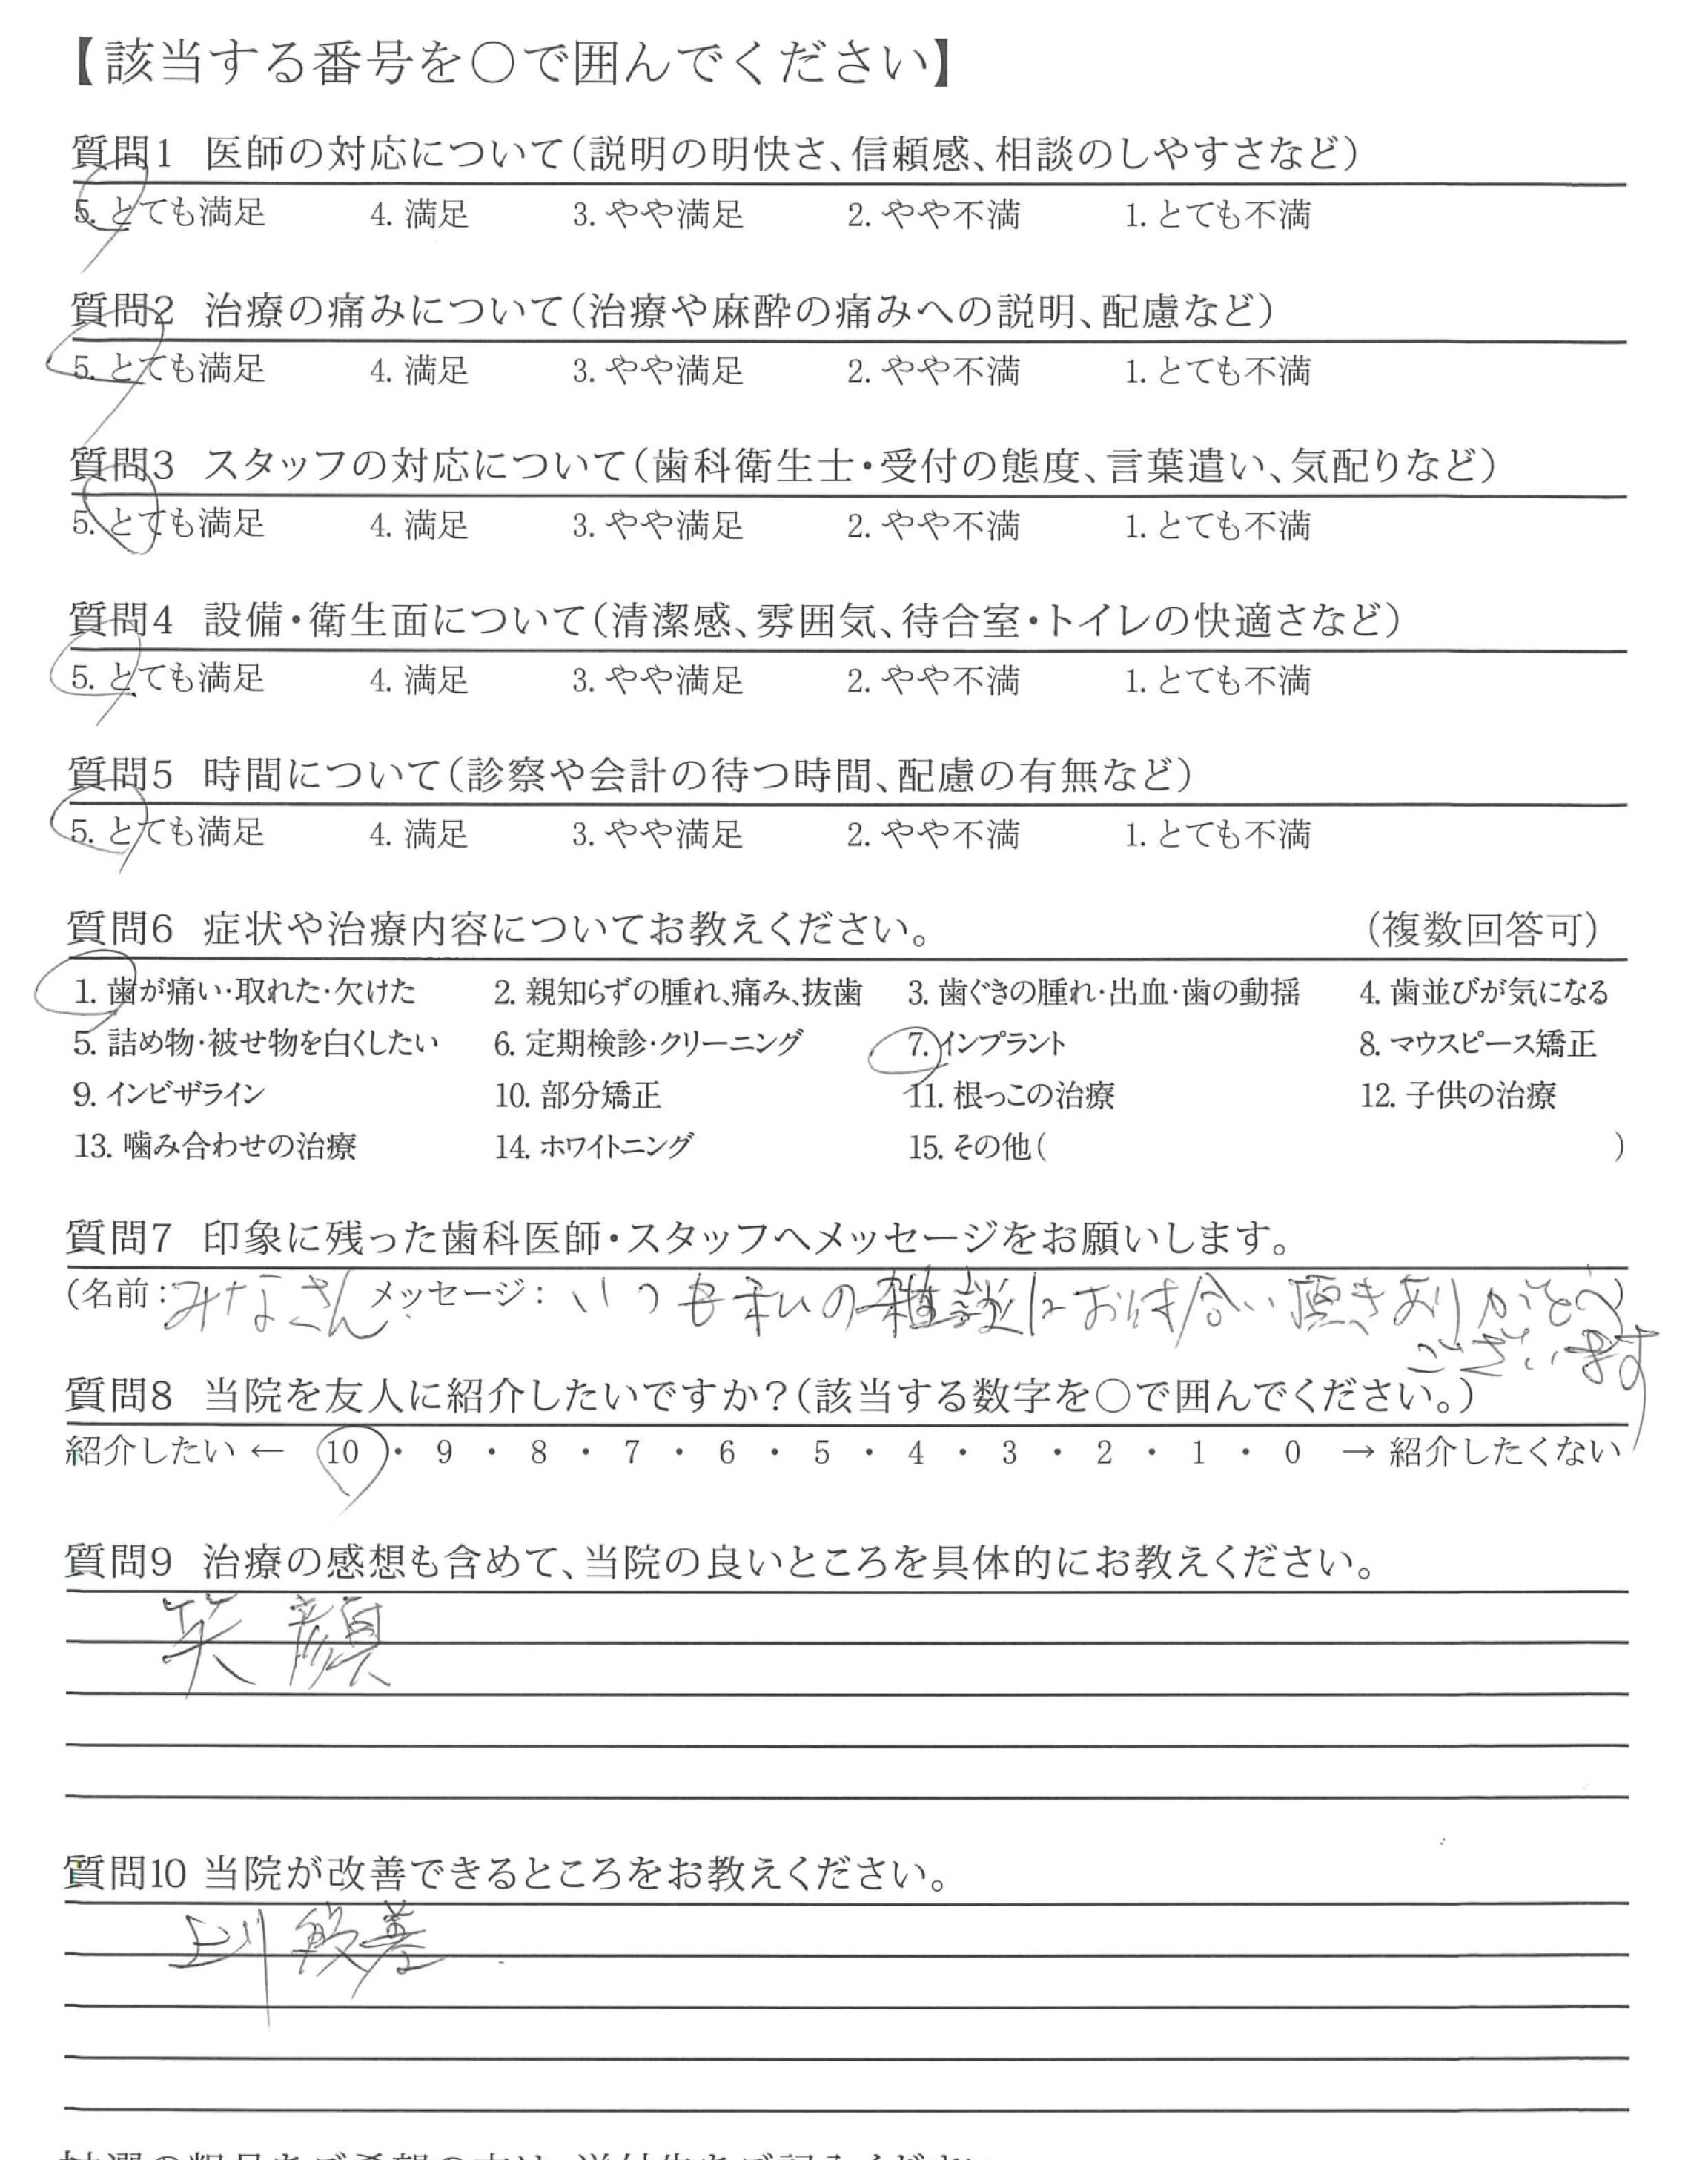 【該当する番号を〇で囲んでください】
質問1 医師の対応について（説明の明快さ、信頼感、相談のしやすさなど）
5. とても満足 4. 満足 3. やや満足 2. やや不満 1. とても不満
質問2 治療の痛みについて（治療や麻酔の痛みへの説明、配慮など）
5. とても満足 4. 満足 3. やや満足 2. やや不満 1. とても不満
質問3 スタッフの対応について（歯科衛生士・受付の態度、言葉遣い、気配りなど）
5. とても満足 4. 満足 3. やや満足 2. やや不満 1. とても不満
質問4 設備・衛生面について（清潔感、雰囲気、待合室・トイレの快適さなど）
5. とても満足 4. 満足 3. やや満足 2. やや不満 1. とても不満
質問5 時間について（診察や会計の待つ時間、配慮の有無など）
5. とても満足 4. 満足 3. やや満足 2. やや不満 1. とても不満
質問6 症状や治療内容についてお教えください。 （複数回答可）
1. 歯が痛い・取れた・欠けた 2. 親知らずの腫れ、痛み、抜歯 3. 歯ぐきの腫れ・出血・歯の動揺 4. 歯並びが気になる
5. 詰め物・被せ物を白くしたい 6. 定期検診・クリーニング 7. インプラント 8. マウスピース矯正
9. インビザライン 10. 部分矯正 11. 根っこの治療 12. 子供の治療
13. 噛み合わせの治療 14. ホワイトニング 15. その他（ ）
質問7 印象に残った歯科医師・スタッフへメッセージをお願いします。
（名前：みなさん メッセージ：いつも私の雑談にお付合い頂きありがとう
ございます
質問8 当院を友人に紹介したいですか？（該当する数字を〇で囲んでください。）
紹介したい ← 10 ・ 9 ・ 8 ・ 7 ・ 6 ・ 5 ・ 4 ・ 3 ・ 2 ・ 1 ・ 0 → 紹介したくない
質問9 治療の感想も含めて、当院の良いところを具体的にお教えください。
笑顔
質問10 当院が改善できるところをお教えください。